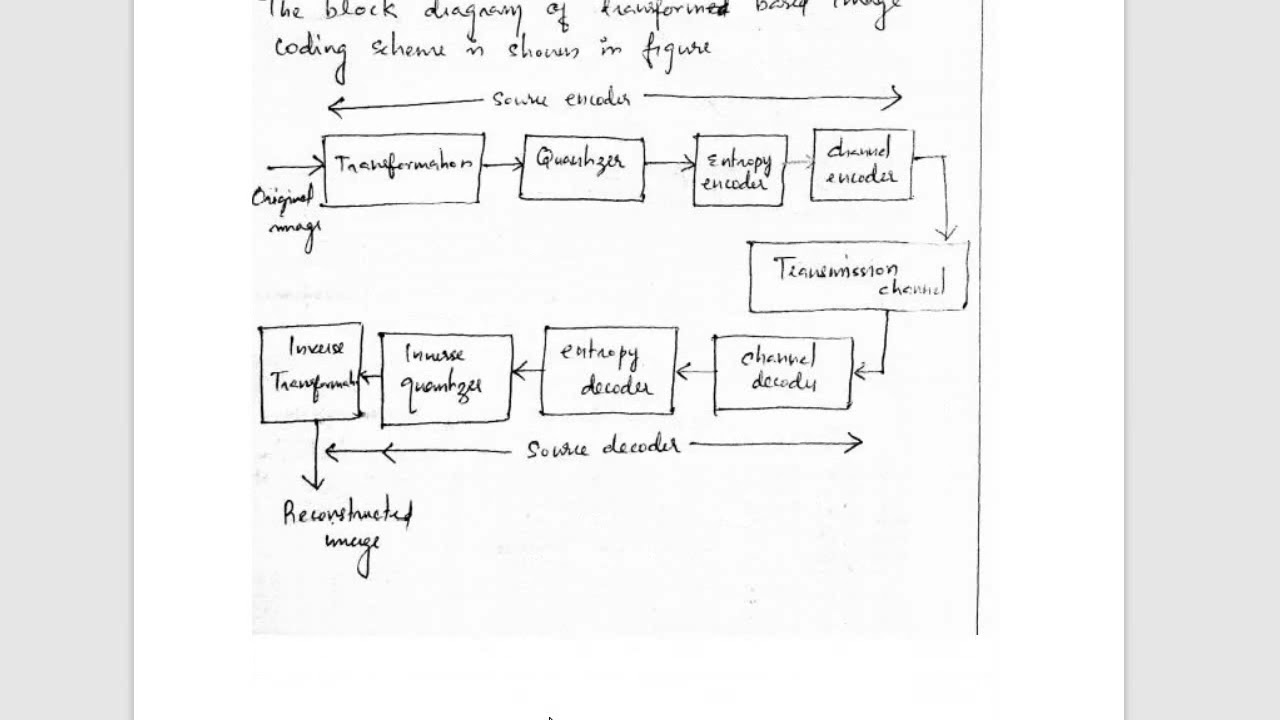 The block diagram of transformed based image
coding scheme is shown in figure
Source encoder
Transformation
Quantizer
Entropy
encoder
channel
encoder
Original
image
Transmission
channel
Inverse
Transformat
Inverse
quantizer
entropy
decoder
channel
decoder
Source decoder
Reconstructed
image